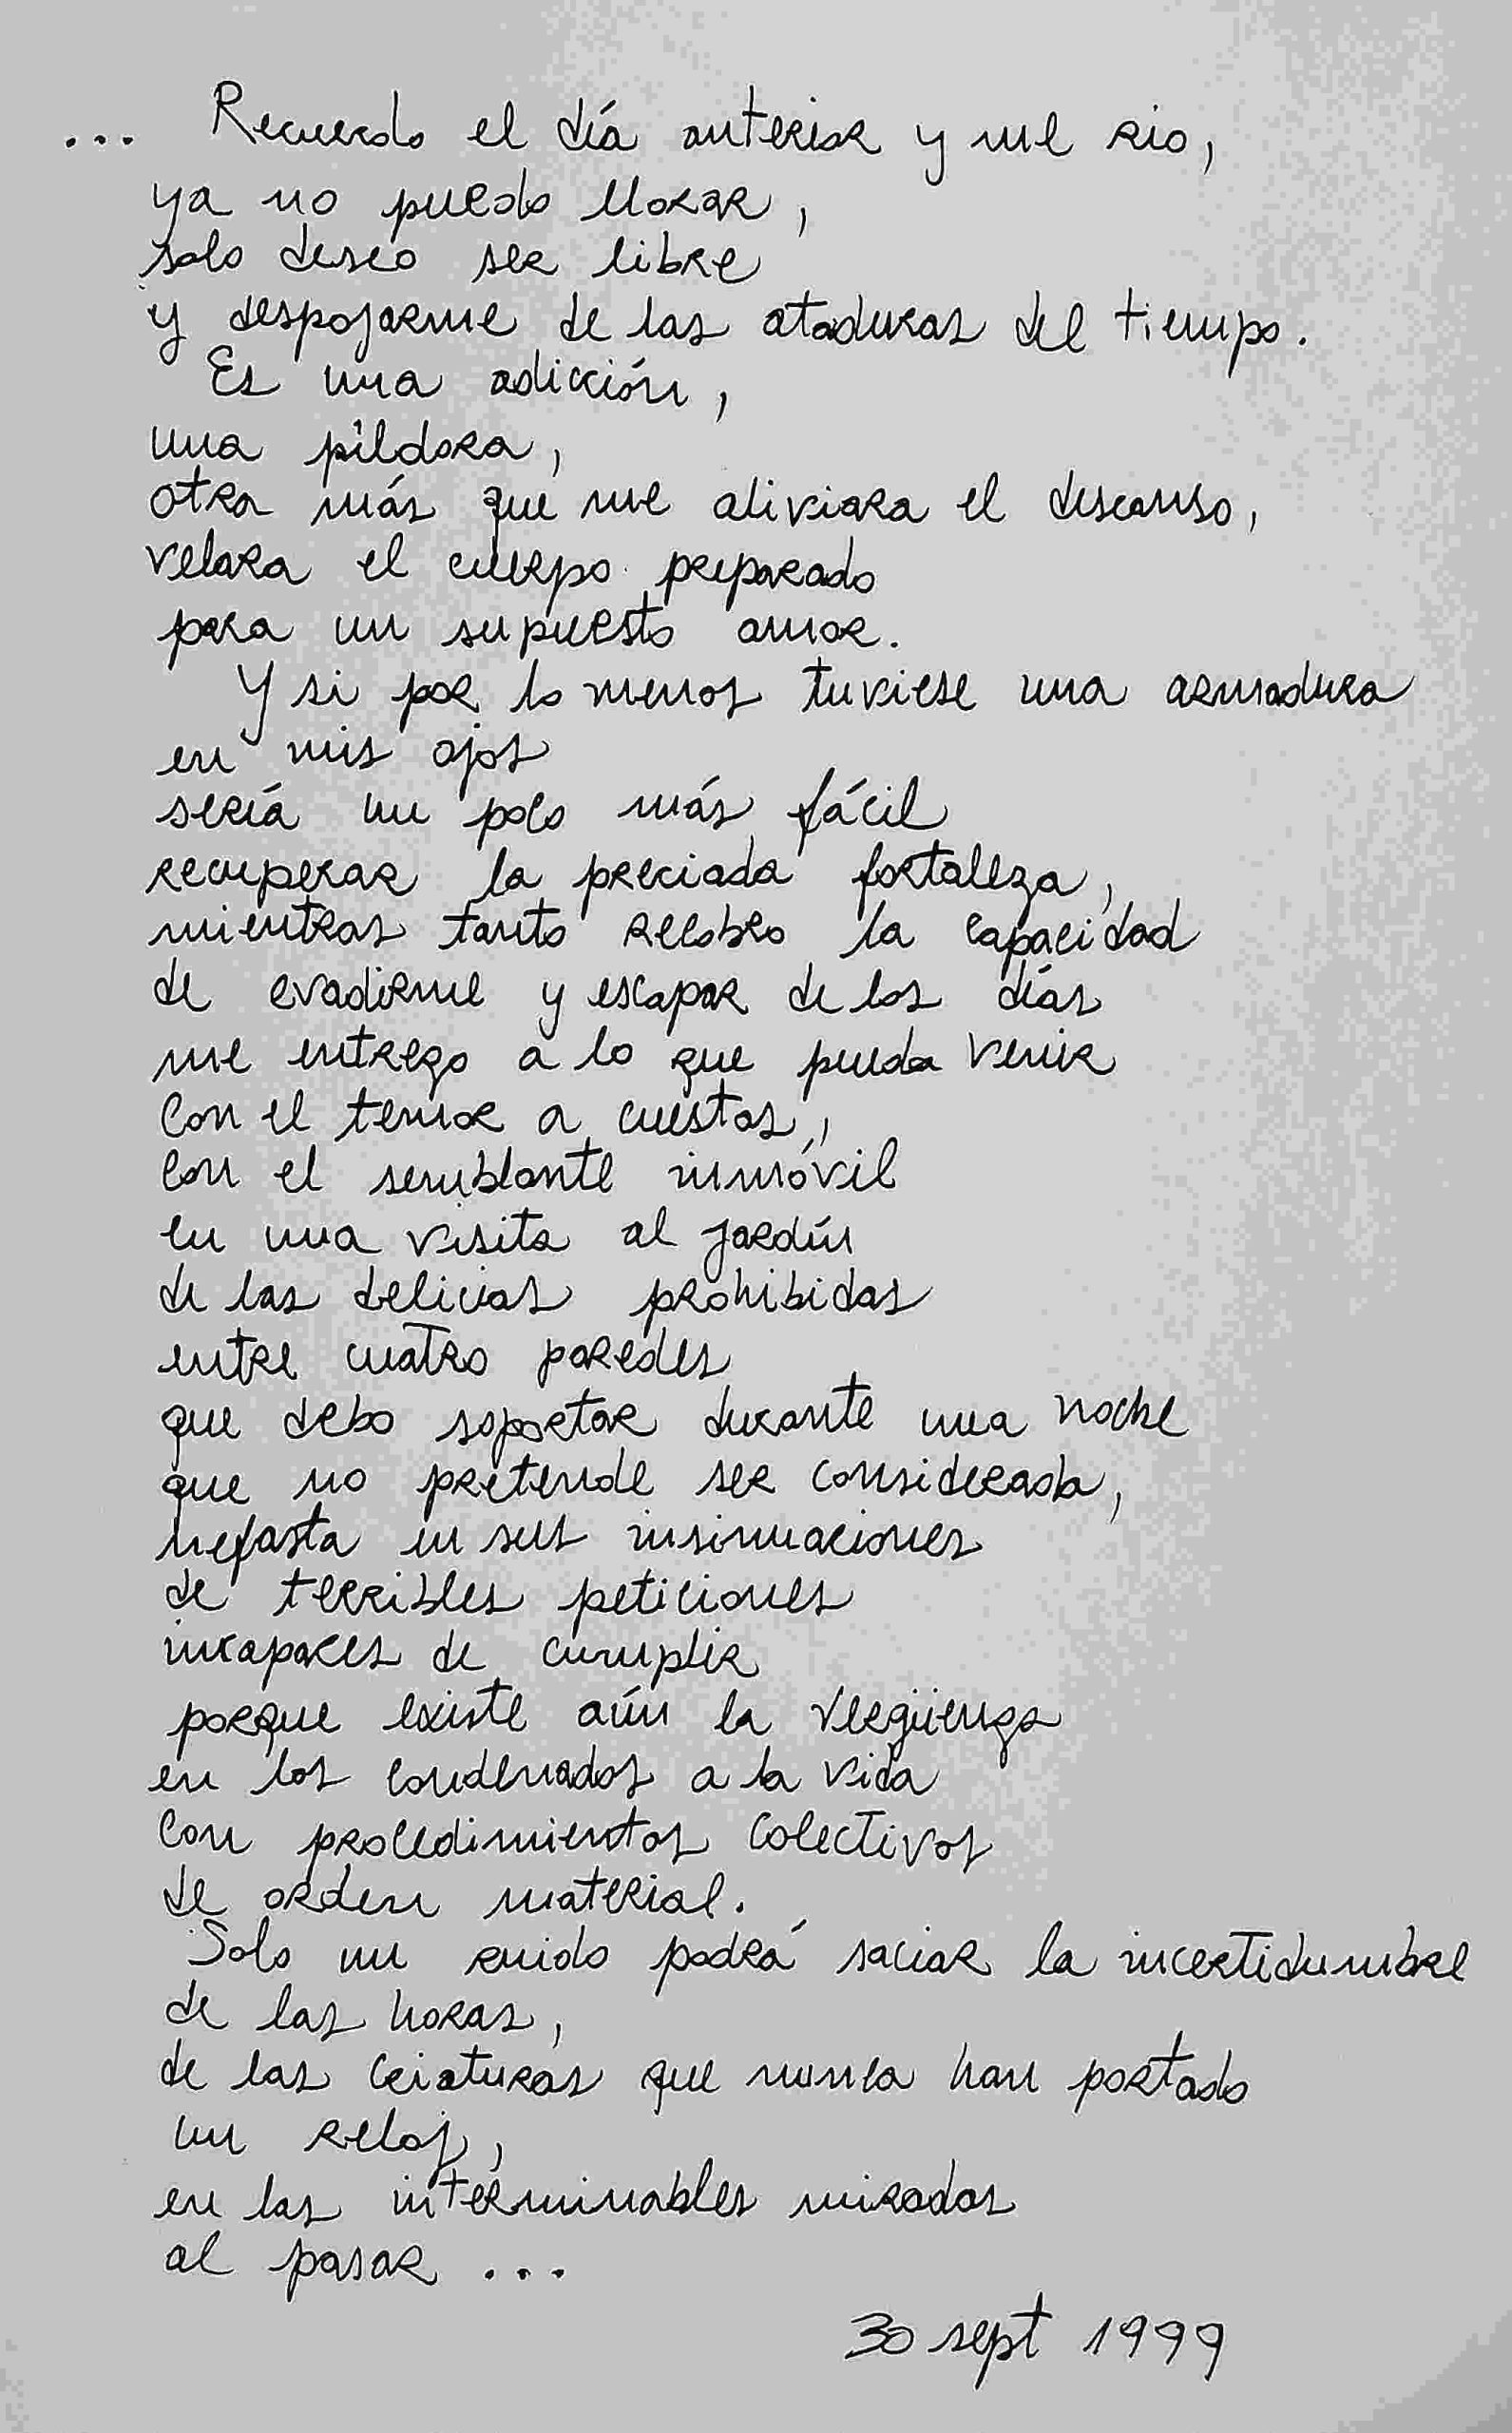 ... Recuerdo el día anterior y me rio,
ya no puedo llorar,
solo deseo ser libre
y despojarme de las ataduras del tiempo.
Es una adicción,
una píldora,
otra más que me aliviara el descanso,
velara el cuerpo preparado
para un supuesto amor.
Y si por lo menos tuviese una armadura
en mis ojos
sería un poco más fácil
recuperar la preciada fortaleza,
mientras tanto recobro la capacidad
de evadirme y escapar de los días
me entrego a lo que pueda venir
con el temor a cuestas,
con el semblante inmóvil
en una visita al jardín
de las delicias prohibidas
entre cuatro paredes
que debo soportar durante una noche
que no pretende ser considerada,
nefasta en sus insinuaciones
de terribles peticiones
incapaces de cumplir
porque existe aún la vergüenza
en los condenados a la vida
con procedimientos colectivos
de orden material.
Solo un ruido podrá saciar la incertidumbre
de las horas,
de las criaturas que nunca han portado
un reloj,
en las interminables miradas
al pasar ...
30 sept 1999